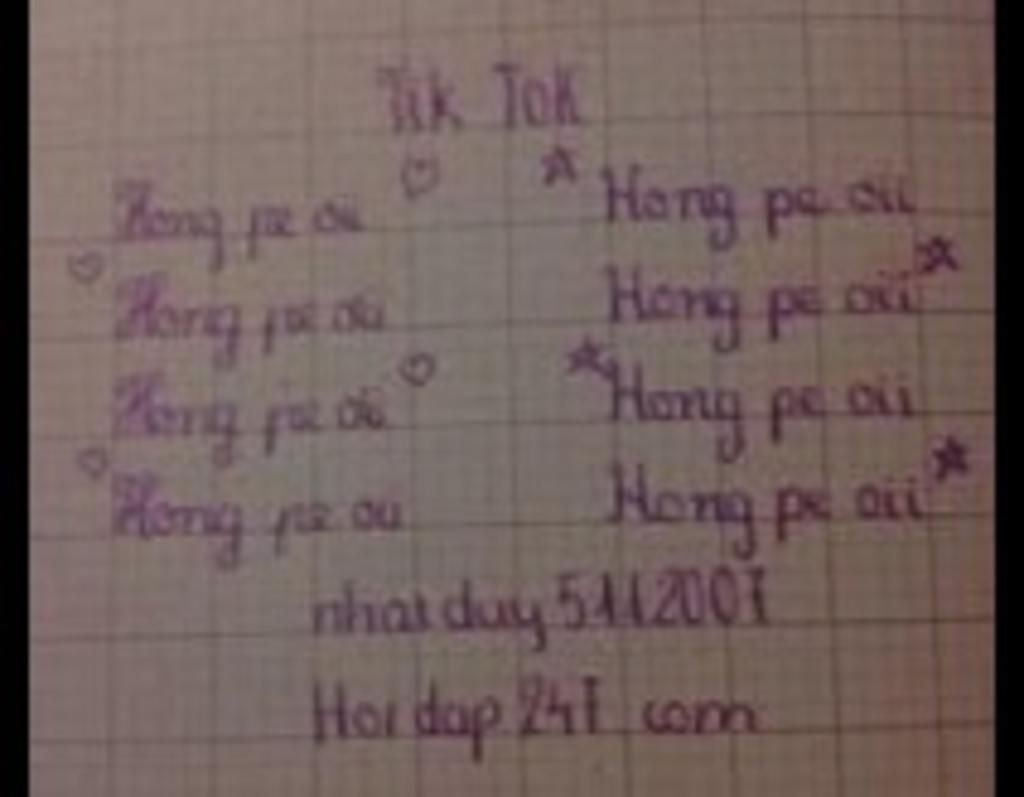 Tik Tok
Hong pe oii Hong pe oii
Hong pe oii Hong pe oii
Hong pe oii Hong pe oii
Hong pe oii Hong pe oii
nhatduy5112007
Hoidap247 com